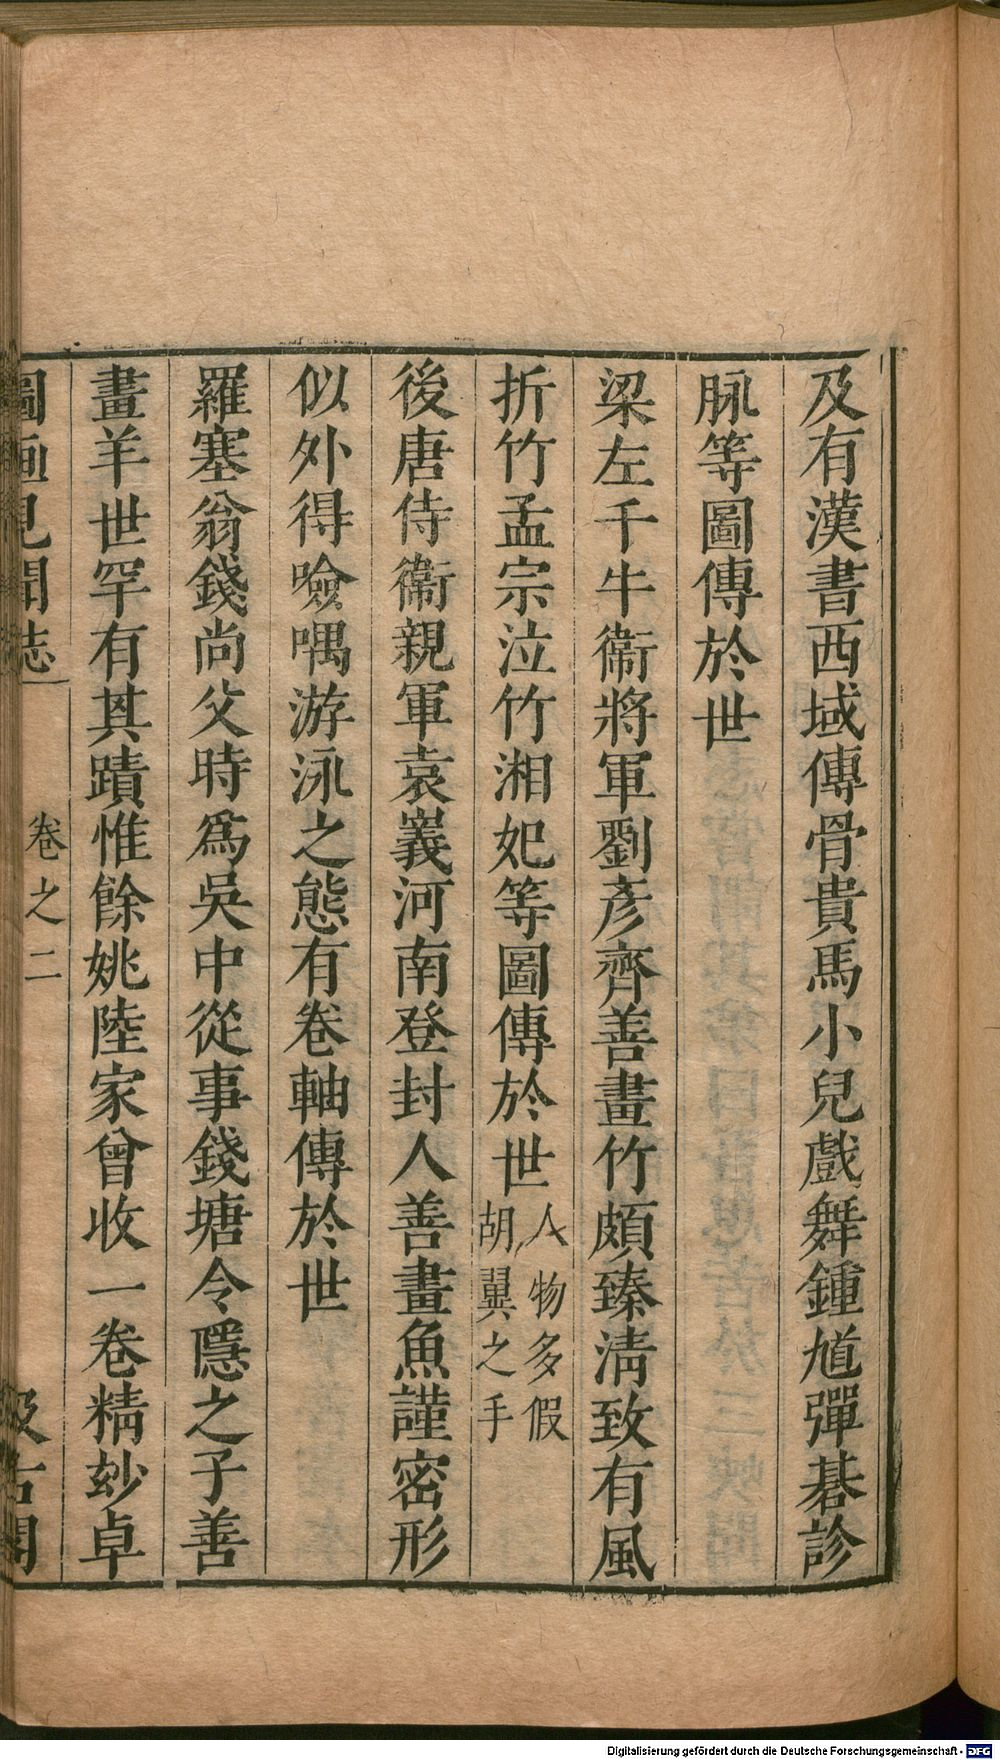 及有漢書西域傳骨貴馬小兒戲舞鍾馗彈碁診
脉等圖傳於世
梁左千牛衞將軍劉彥齊善畫竹頗臻淸致有風
折竹孟宗泣竹湘妃等圖傳於世人物多假
胡翼之手
後唐侍衞親軍袁嶬河南登封人善畫魚謹密形
似外得噞喁游泳之態有卷軸傳於世
羅塞翁錢尚父時爲吳中從事錢塘令隱之子善
畫羊世罕有其蹟惟餘姚陸家曾收一卷精玅卓
圖畫見聞志 卷之二 汲古閣
Digitalisierung gefördert durch die Deutsche Forschungsgemeinschaft - DFG